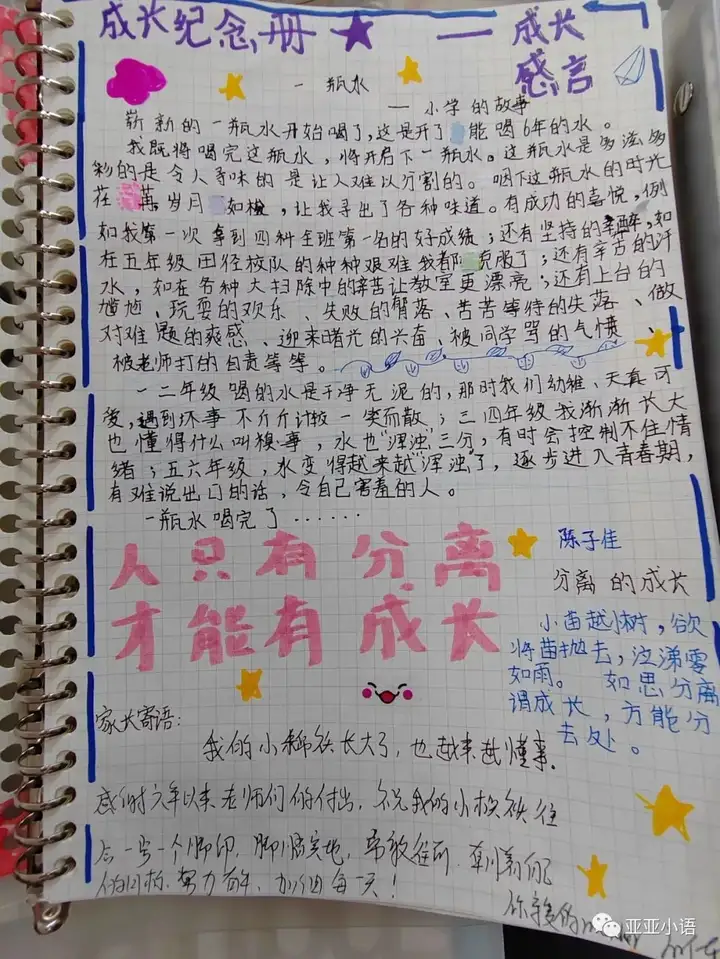 成长纪念册 — 成长
感言
一瓶水
— 小学的故事
崭新的一瓶水开始喝了,这是开了能喝6年的水。
我既将喝完这瓶水,将开启下一瓶水。这瓶水是多法多
彩的是令人寻味的是让人难以分割的。咽下这瓶水的时光
荏苒岁月如梭,让我寻出了各种味道。有成功的喜悦,例
如我第一次拿到四种全班第一名的好成绩;还有坚持的辛酸,如
在五年级田径校队的种种艰难我都克服了;还有辛苦的汗
水,如在各种大扫除中的辛苦让教室更漂亮;还有上台的
尴尬、玩耍的欢乐、失败的郁落、苦苦等待的失落、做
对难题的爽感、迎来曙光的兴奋、被同学骂的气愤、
被老师打的自责等等。
一二年级喝的水是干净无泥的,那时我们幼稚、天真可
爱,遇到坏事不斤斤计较一笑而散;三四年级我渐渐长大
也懂得什么叫糗事,水也"浑浊"三分,有时会控制不住情
绪;五六年级,水变得越来越"浑浊"了,逐步进入青春期,
有难说出口的话,令自己害羞的人。
一瓶水喝完了······
人只有分离
才能有成长
陈子佳
分离的成长
小苗越树,欲
将苗抛去,泣涕零
如雨。如思分离
谓成长,方能分
去处。
家长寄语:
我的小棉袄长大了,也越来越懂事.
感谢六年以来老师们的付出,祝我的小棉袄往
后一步一个脚印,脚踏实地,勇敢往前.朝着自己
的目标.努力奋斗.加油每一天!
你亲爱的
亚亚小语